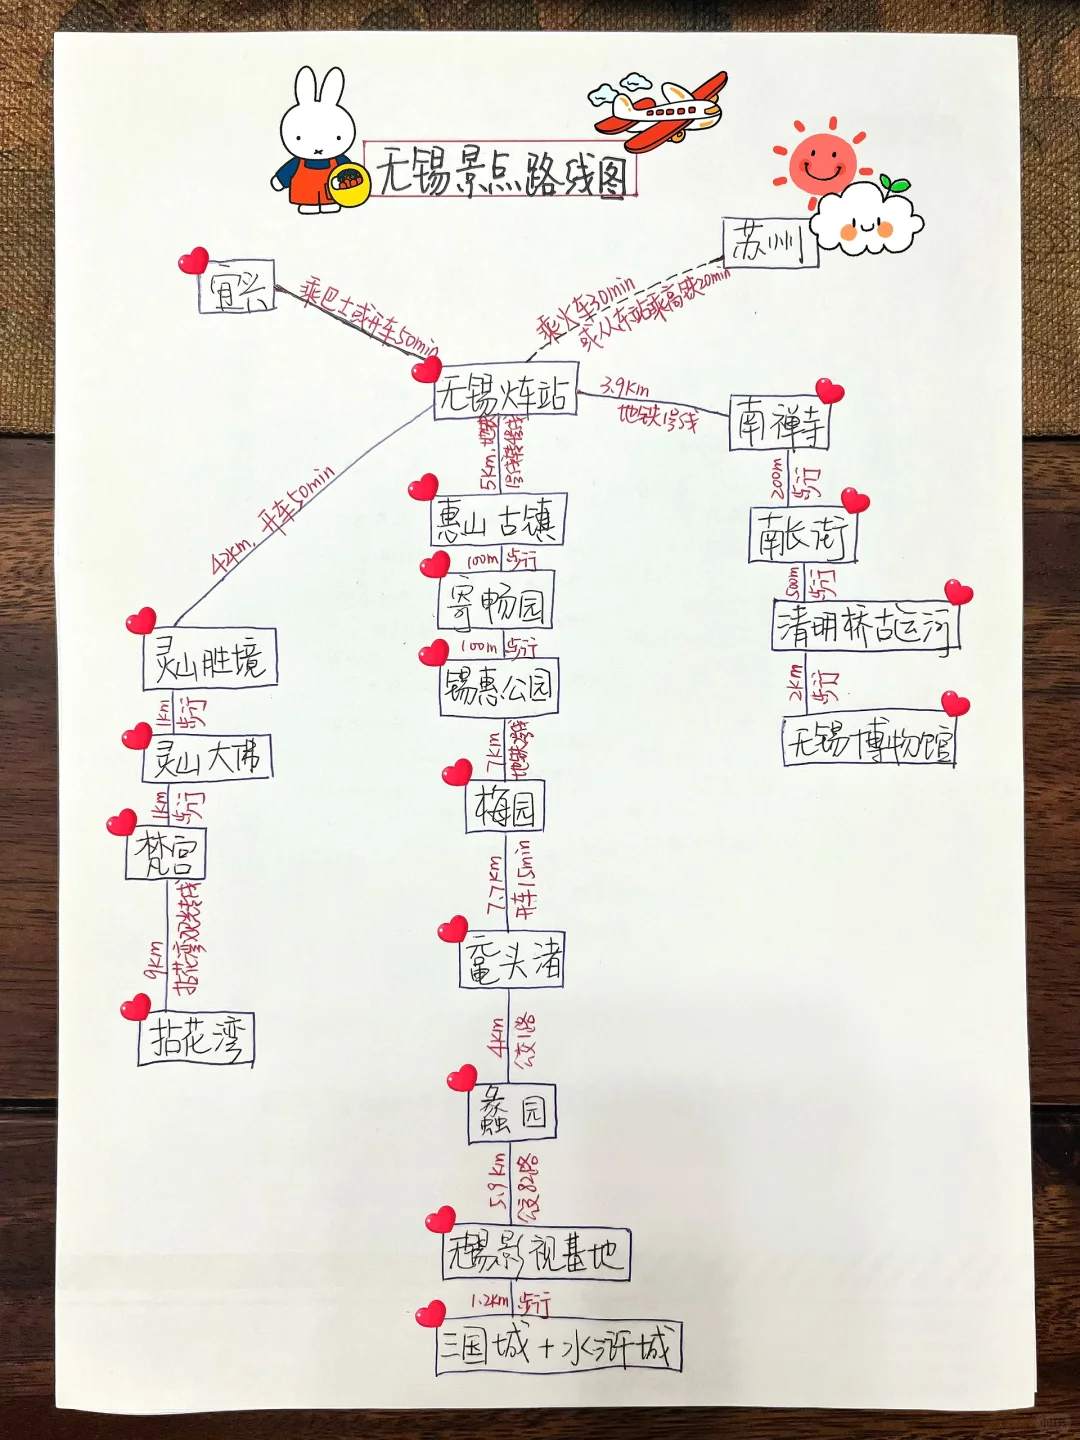 无锡景点路线图
苏州
宜兴
乘巴士或开车50min
乘火车30min
或从车站乘高铁20min
无锡火车站
3.9km
地铁1号线
南禅寺
200m
步行
南长街
500m
步行
清明桥古运河
2km
步行
无锡博物馆
5km,地铁
1号线转4号线
惠山古镇
100m 步行
寄畅园
100m 步行
锡惠公园
7km
梅园
7.7km
开车15min
鼋头渚
4km
公交1路
蠡园
5.9km
公交82路
无锡影视基地
1.2km 步行
三国城+水浒城
42km,开车50min
灵山胜境
1km
步行
灵山大佛
1km
步行
梵宫
9km
拈花湾观光线
拈花湾
小红书